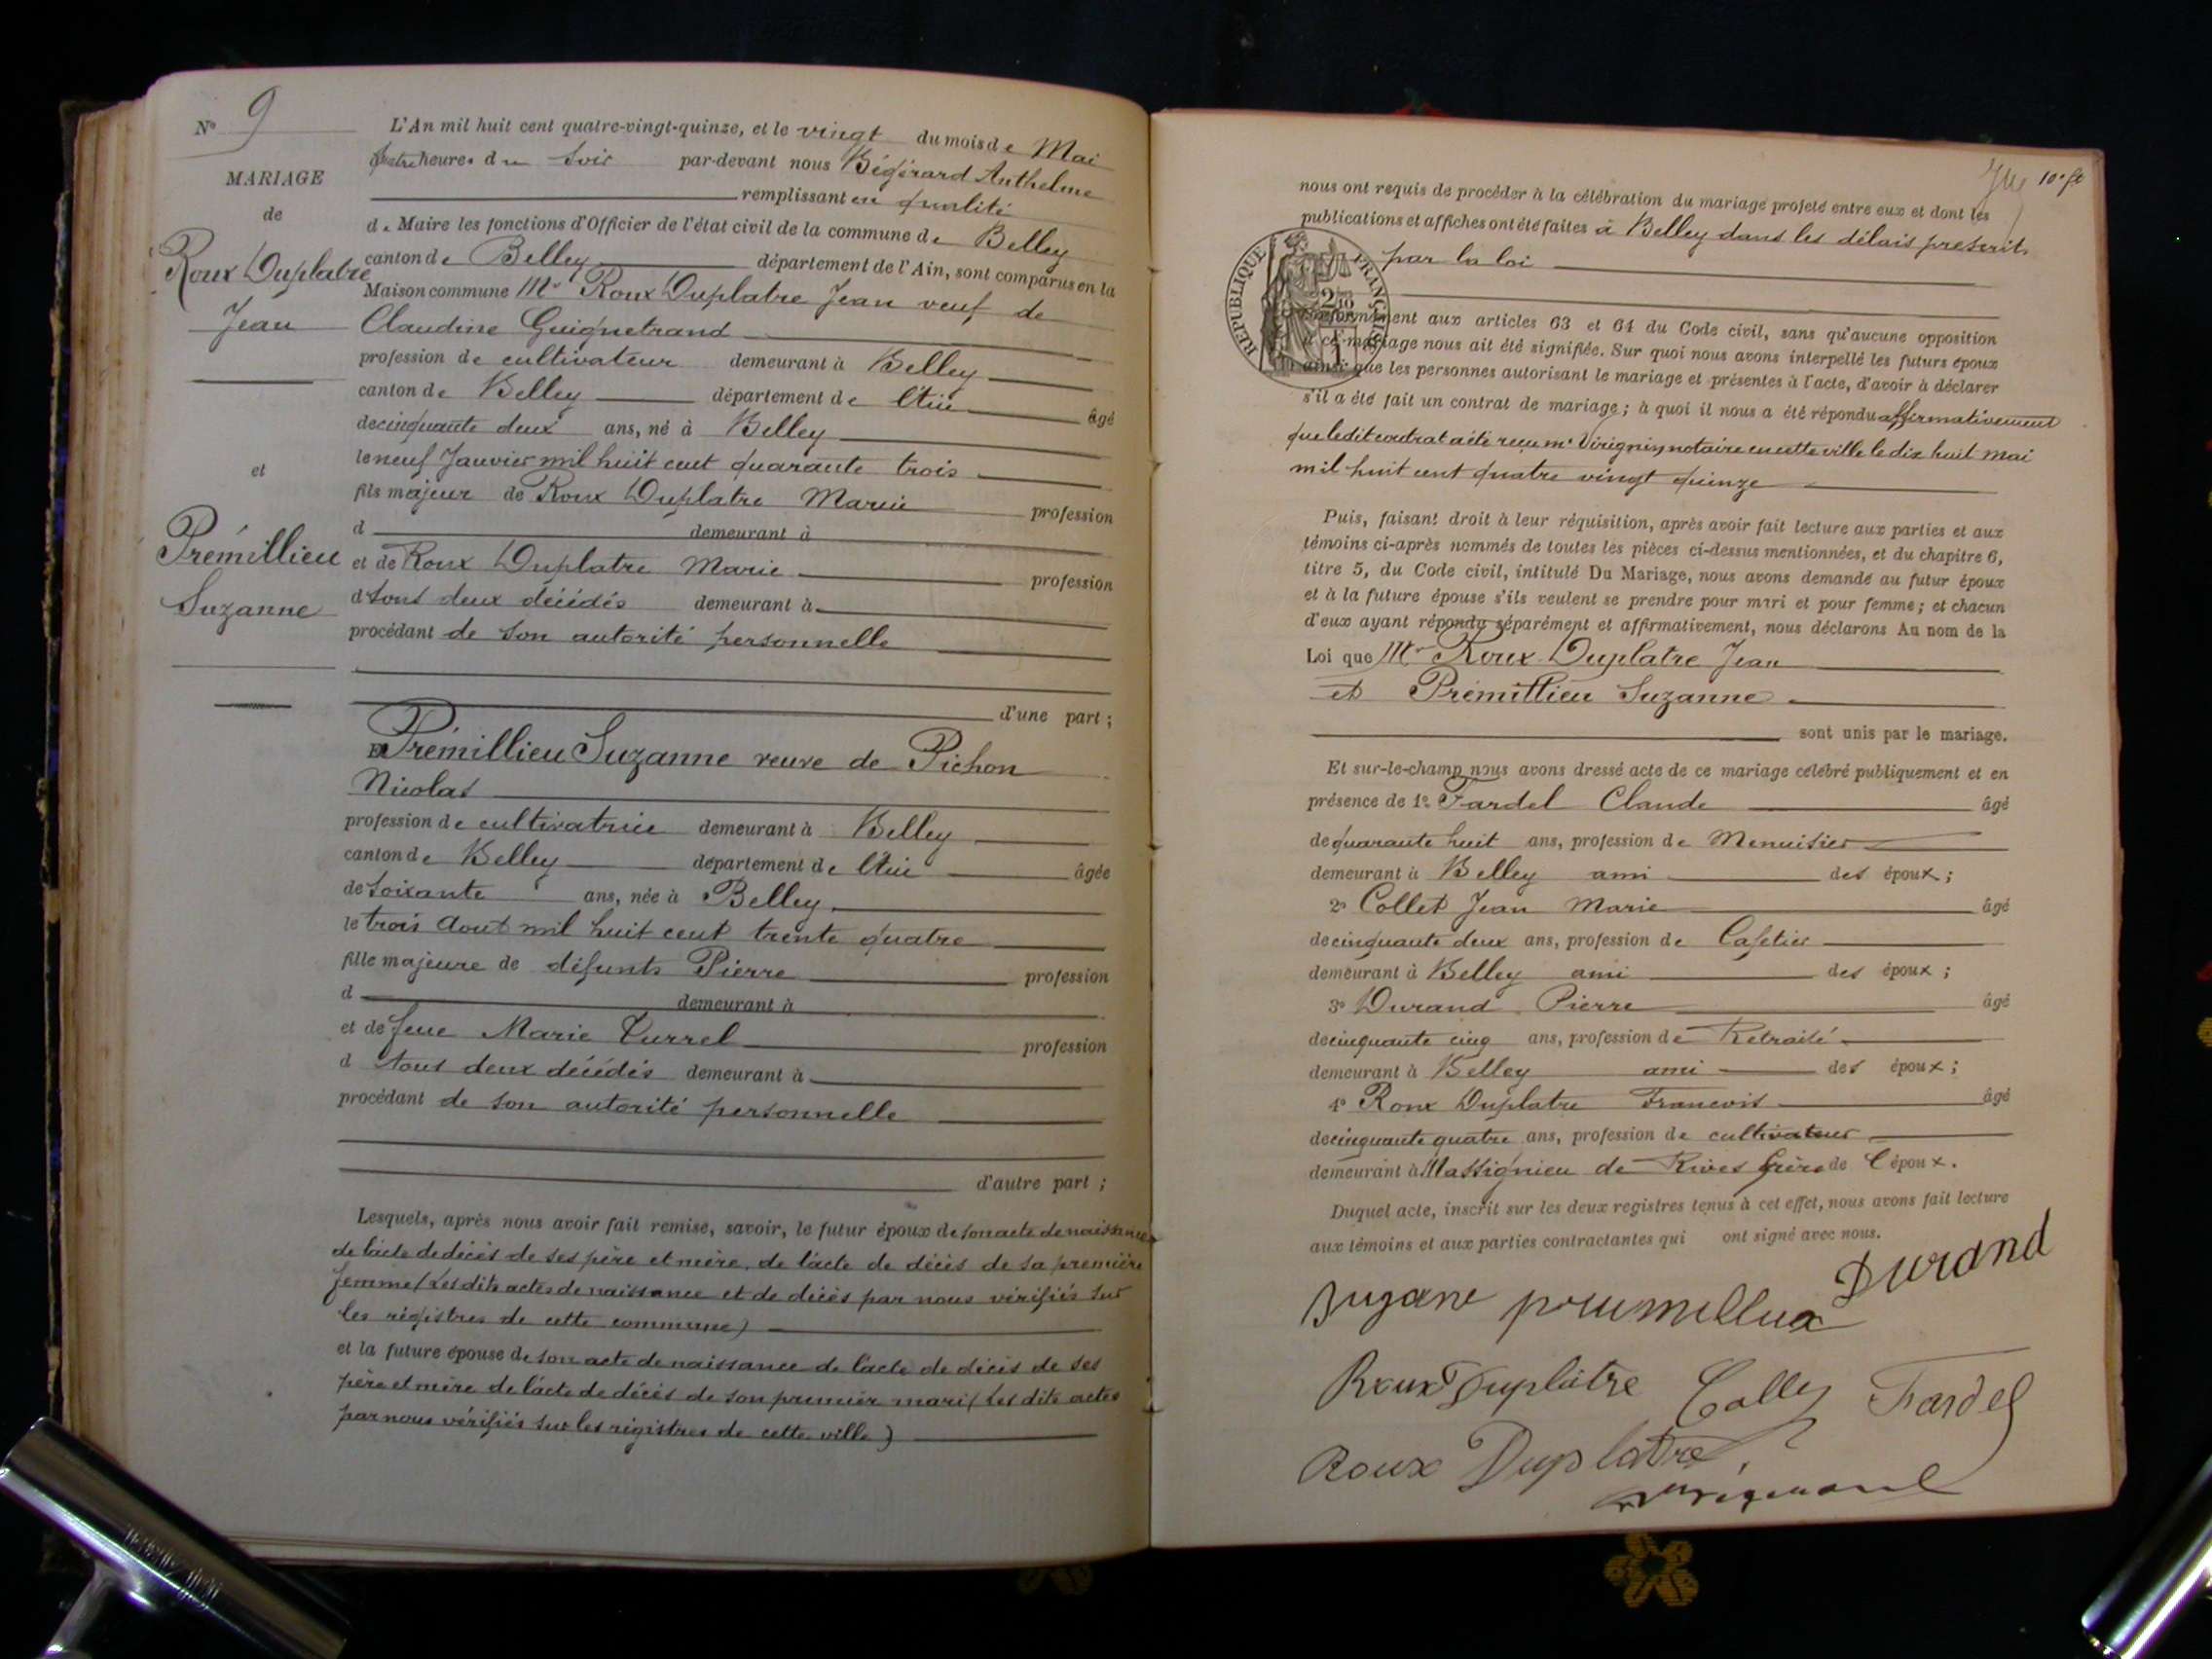 N° 9
MARIAGE
de
Roux Duplatre
Jean
et
Prémillieu
Suzanne
L'An mil huit cent quatre-vingt-quinze, et le vingt du mois de Mai
quatre heures du Soir par-devant nous Bégérard Anthelme
remplissant en qualité
de Maire les fonctions d'Officier de l'état civil de la commune de Belley
canton de Belley département de l'Ain, sont comparus en la
Maison commune Mr Roux Duplatre Jean veuf de
Claudine Guignetrand
profession de cultivateur demeurant à Belley
canton de Belley département de l'Ain âgé
de cinquante deux ans, né à Belley
le neuf Janvier mil huit cent quarante trois
fils majeur de Roux Duplatre Marin profession
d demeurant à
et de Roux Duplatre Marie profession
d tous deux décédés demeurant à
procédant de son autorité personnelle
d'une part ;
Et Prémillieu Suzanne veuve de Pichon
Nicolas
profession de cultivatrice demeurant à Belley
canton de Belley département de l'Ain âgée
de soixante ans, née à Belley
le trois Aout mil huit cent trente quatre
fille majeure de défunts Pierre profession
d demeurant à
et de feue Marie Turrel profession
d tous deux décédés demeurant à
procédant de son autorité personnelle
d'autre part ;
Lesquels, après nous avoir fait remise, savoir, le futur époux de son acte de naissance
de l'acte de décès de ses père et mère, de l'acte de décès de sa première
femme (Les dits actes de naissance et de décès par nous vérifiés sur
les régistres de cette commune)
et la future épouse de son acte de naissance de l'acte de décès de ses
père et mère de l'acte de décès de son premier mari (Les dits actes
par nous vérifiés sur les régistres de cette ville)
10e ft
nous ont requis de procéder à la célébration du mariage projeté entre eux et dont les
publications et affiches ont été faites à Belley dans les délais prescrits
par la loi
RÉPUBLIQUE FRANÇAISE
conformément aux articles 63 et 64 du Code civil, sans qu'aucune opposition
à ce mariage nous ait été signifiée. Sur quoi nous avons interpellé les futurs époux
ainsi que les personnes autorisant le mariage et présentes à l'acte, d'avoir à déclarer
s'il a été fait un contrat de mariage ; à quoi il nous a été répondu affirmativement
que ledit contrat a été reçu me Virignin, notaire en cette ville le dix huit mai
mil huit cent quatre vingt quinze
Puis, faisant droit à leur réquisition, après avoir fait lecture aux parties et aux
témoins ci-après nommés de toutes les pièces ci-dessus mentionnées, et du chapitre 6,
titre 5, du Code civil, intitulé Du Mariage, nous avons demandé au futur époux
et à la future épouse s'ils veulent se prendre pour mari et pour femme ; et chacun
d'eux ayant répondu séparément et affirmativement, nous déclarons Au nom de la
Loi que Mr Roux Duplatre Jean
et Prémillieu Suzanne
sont unis par le mariage.
Et sur-le-champ nous avons dressé acte de ce mariage célébré publiquement et en
présence de 1° Fardel Claude âgé
de quarante huit ans, profession de Menuisier
demeurant à Belley ami des époux ;
2° Collet Jean Marie âgé
de cinquante deux ans, profession de Cafetier
demeurant à Belley ami des époux ;
3° Durand Pierre âgé
de cinquante cinq ans, profession de Retraité
demeurant à Belley ami des époux ;
4° Roux Duplatre Francois âgé
de cinquante quatre ans, profession de cultivateur
demeurant à Massignieu de Rives frère de l'époux.
Duquel acte, inscrit sur les deux registres tenus à cet effet, nous avons fait lecture
aux témoins et aux parties contractantes qui ont signé avec nous.
Durand
Roux Duplatre Fardel
Roux Duplatre